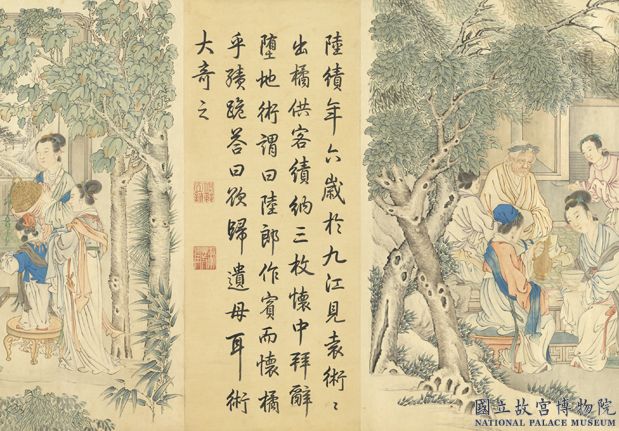 陸績年六歲於九江見袁術〻
出橘供客績納三枚懷中拜辭
堕地術謂曰陸郎作賓而懷橘
乎績跪答曰欲歸遺母耳術
大奇之
國立故宮博物院
NATIONAL PALACE MUSEUM